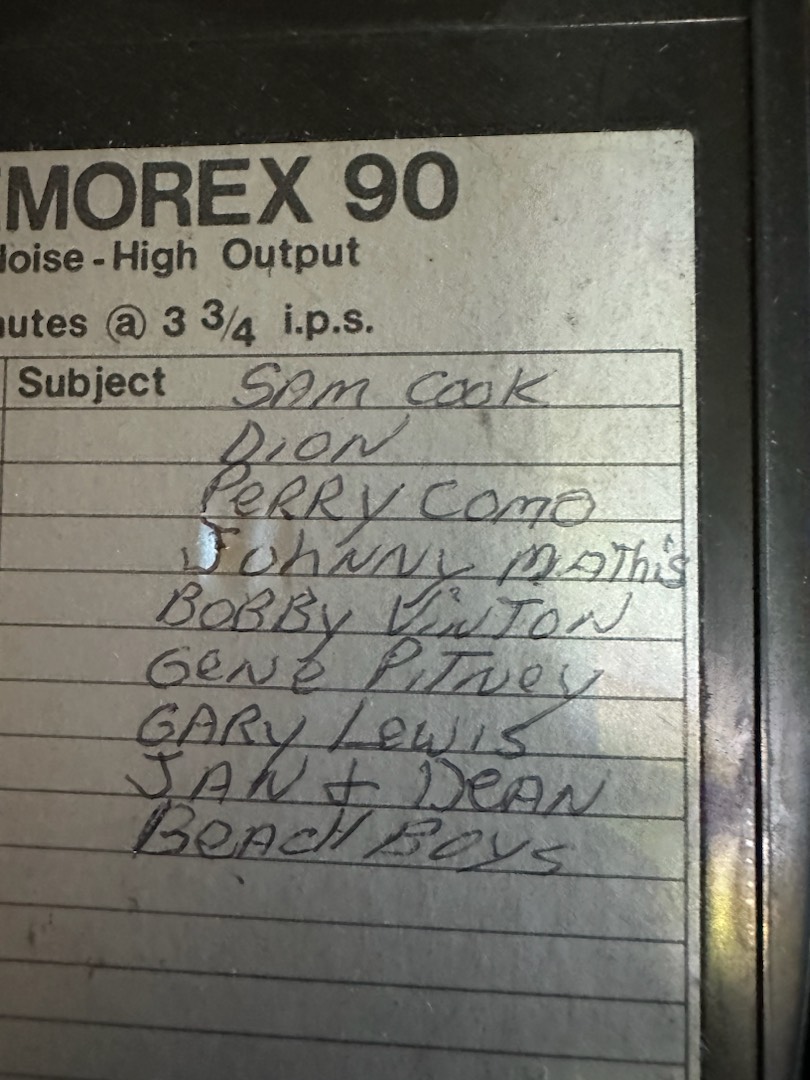 EMOREX 90
Noise - High Output
nutes @ 3 3/4 i.p.s.
Subject SAM COOK
DION
PERRY COMO
JOHNNY MATHIS
BOBBY VINTON
GENE PITNEY
GARY LEWIS
JAN + DEAN
BEACH BOYS